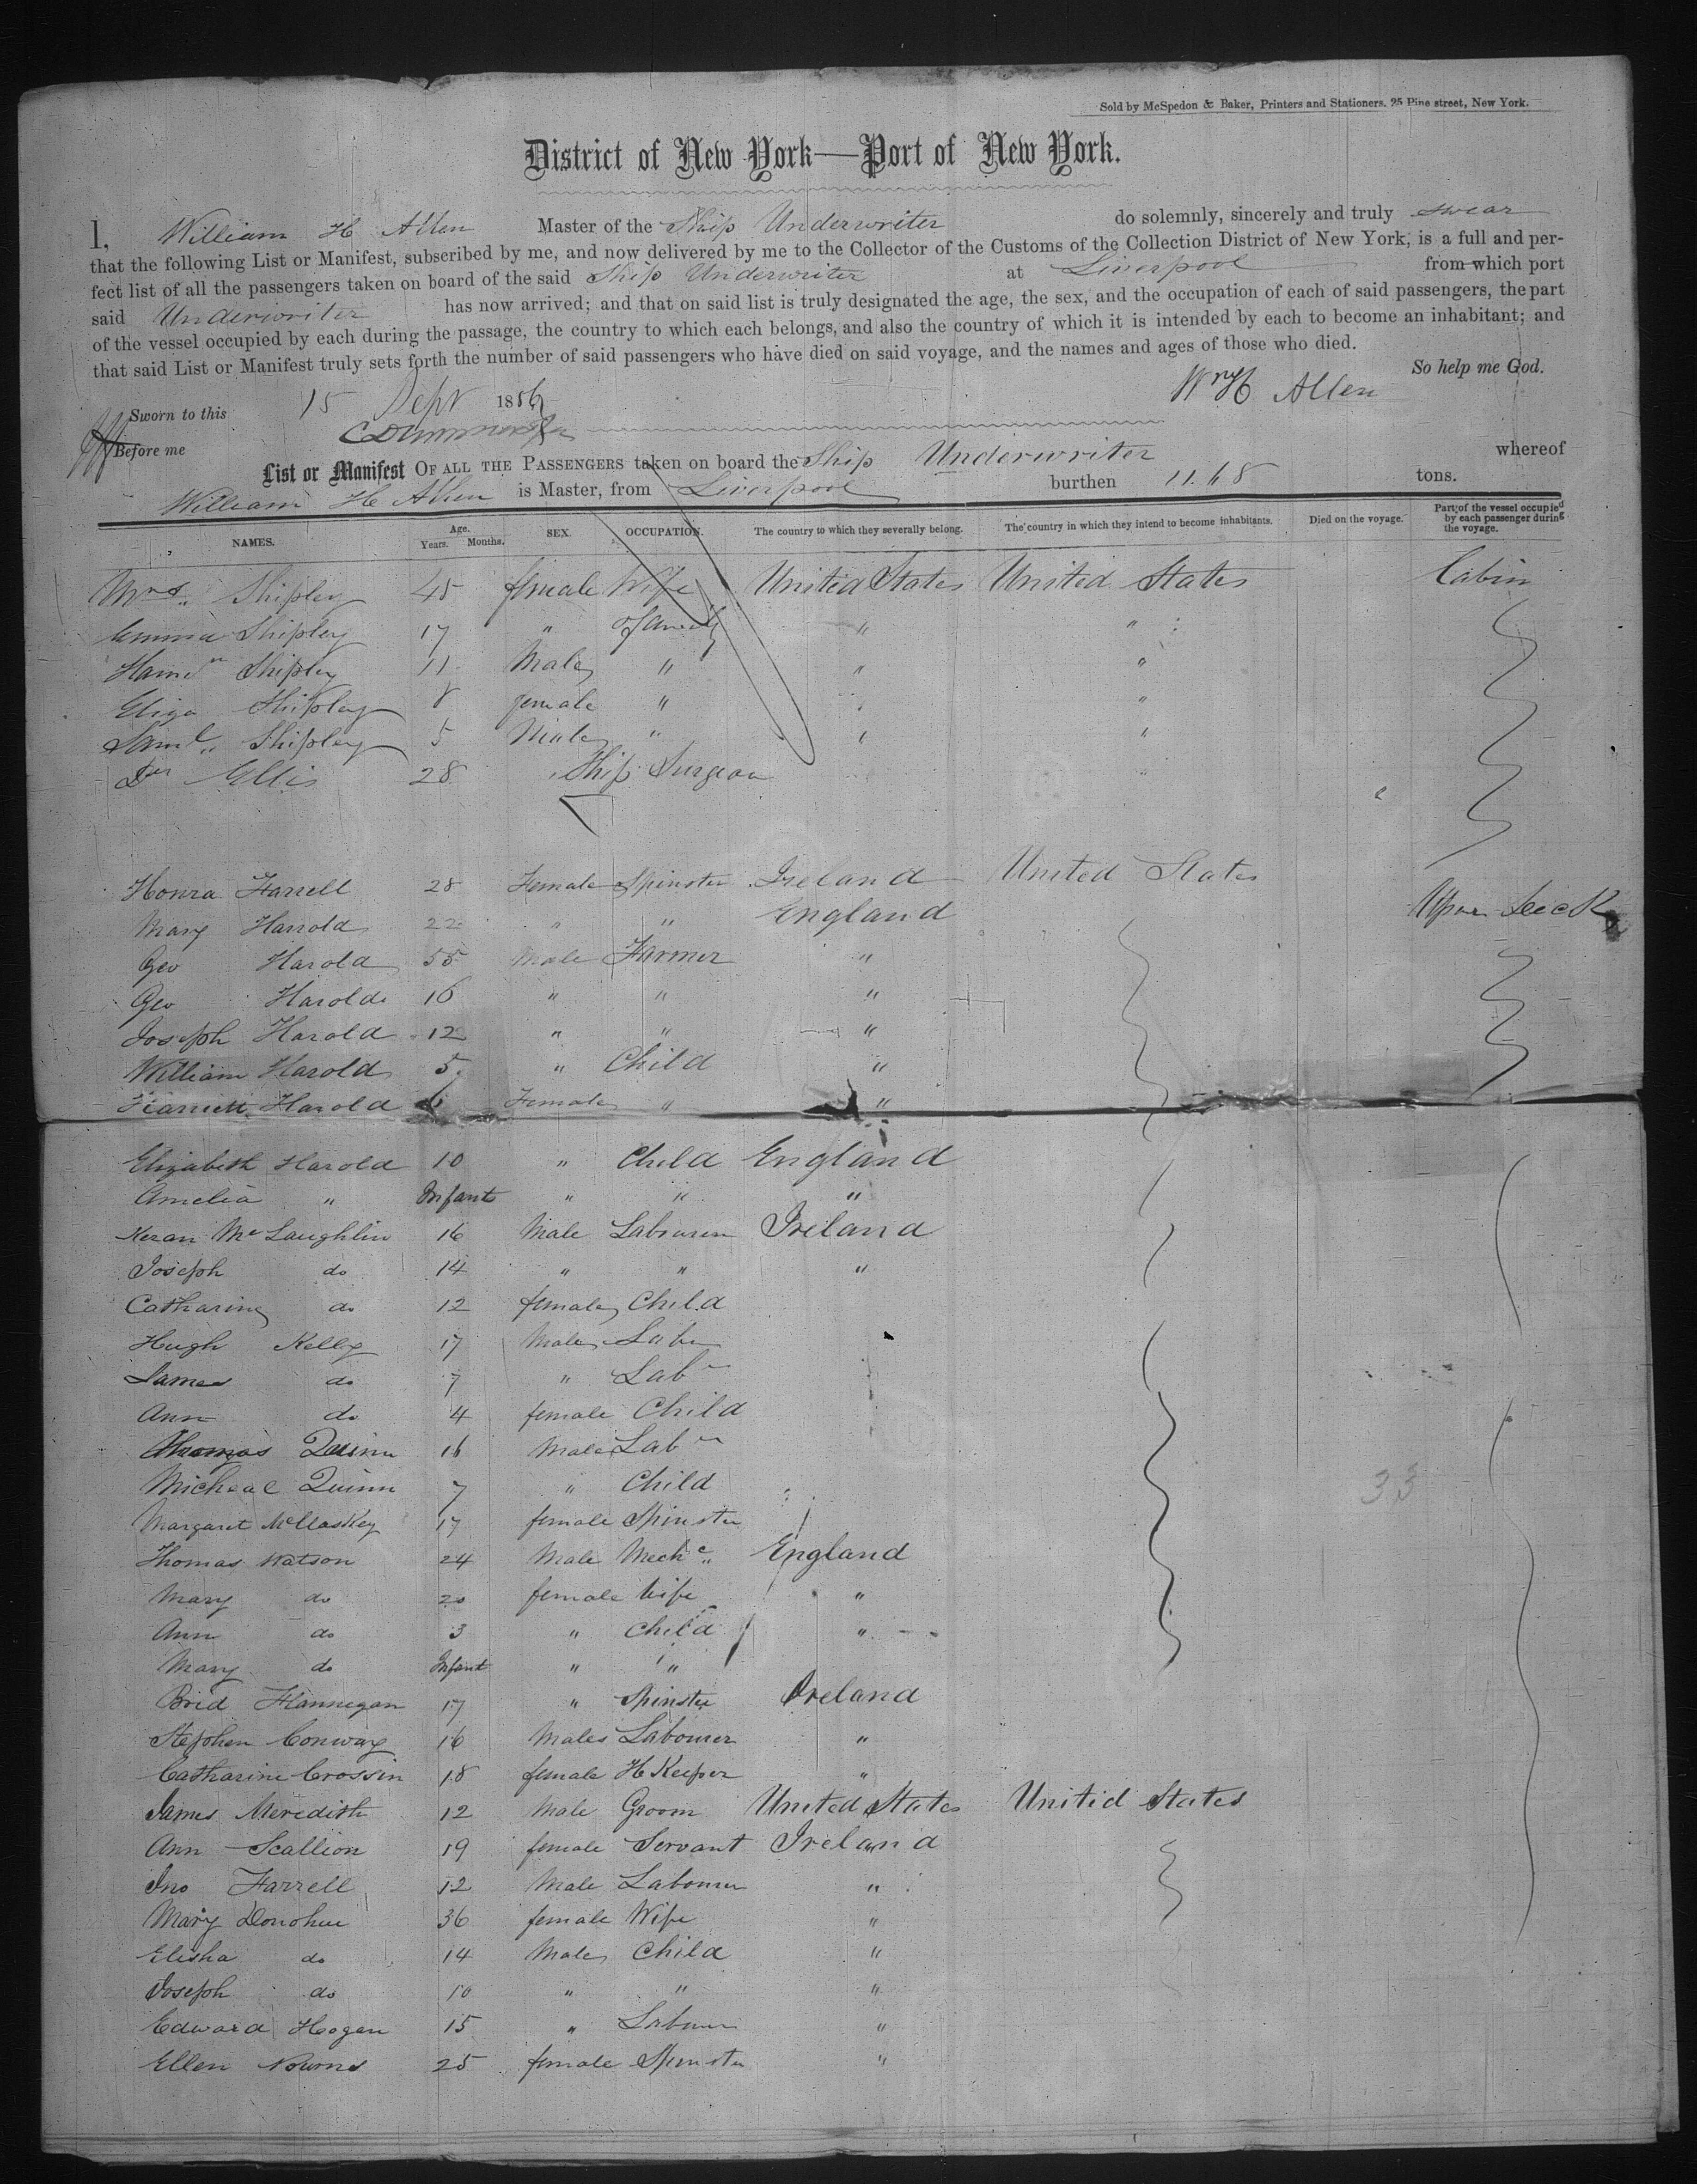 Sold by McSpedon & Baker, Printers and Stationers. 25 Pine street, New York.
District of New York—Port of New York.
I, William H Allen Master of the Ship Underwriter do solemnly, sincerely and truly swear
that the following List or Manifest, subscribed by me, and now delivered by me to the Collector of the Customs of the Collection District of New York, is a full and per-
fect list of all the passengers taken on board of the said Ship Underwriter at Liverpool from which port
said Underwriter has now arrived; and that on said list is truly designated the age, the sex, and the occupation of each of said passengers, the part
of the vessel occupied by each during the passage, the country to which each belongs, and also the country of which it is intended by each to become an inhabitant; and
that said List or Manifest truly sets forth the number of said passengers who have died on said voyage, and the names and ages of those who died.
So help me God.
Wm H Allen
Sworn to this 15 Sept 1856
Before me
List or Manifest OF ALL THE PASSENGERS taken on board the Ship Underwriter whereof
William H Allen is Master, from Liverpool burthen 1168 tons.
NAMES. Age. Years. Months. SEX. OCCUPATION. The country to which they severally belong. The country in which they intend to become inhabitants. Died on the voyage. Part of the vessel occupied by each passenger during the voyage.
Mrs. Shipley 45 female Wife United States United States Cabin
Emma Shipley 17 " " "
Shipley 11 Male " " "
Eliza Shipley 8 female " " "
Saml. Shipley 5 Male " " "
Dr Ellis 28 Ship Surgeon "
Honra Farrell 28 Female Spinster Ireland United States
Mary Harrold 22 " " England Upper Deck
Geo Harold 55 Male Farmer "
Geo Harold 16 " " "
Joseph Harold 12 " " "
William Harold 5 " Child "
Harriett Harold 6 Female " "
Elizabeth Harold 10 " Child England
Amelia " Infant " " "
Keran McLaughlin 16 Male Labourer Ireland
Joseph do 14 " " "
Catharine do 12 female Child
Hugh Kelly 17 Male Labr
James do 7 " Labr
Ann do 4 female Child
Thomas Quinn 16 Male Labr
Micheal Quinn 7 " Child "
Margaret McClaskey 17 female Spinster
Thomas Watson 24 Male Mechc England
Mary do 20 female Wife "
Ann do 3 " Child "
Mary do Infant " "
Brid Flannegan 17 " Spinster Ireland
Stephen Conway 16 Male Labourer "
Catharine Crossin 18 female H Keeper "
James Meredith 12 Male Groom United States United States
Ann Scallion 19 female Servant Ireland
Jno Farrell 12 Male Labourer "
Mary Donohue 36 female Wife "
Elisha do 14 Male Child "
Joseph do 10 " " "
Edward Hogan 15 " Labourer "
Ellen 25 female Spinster "
33